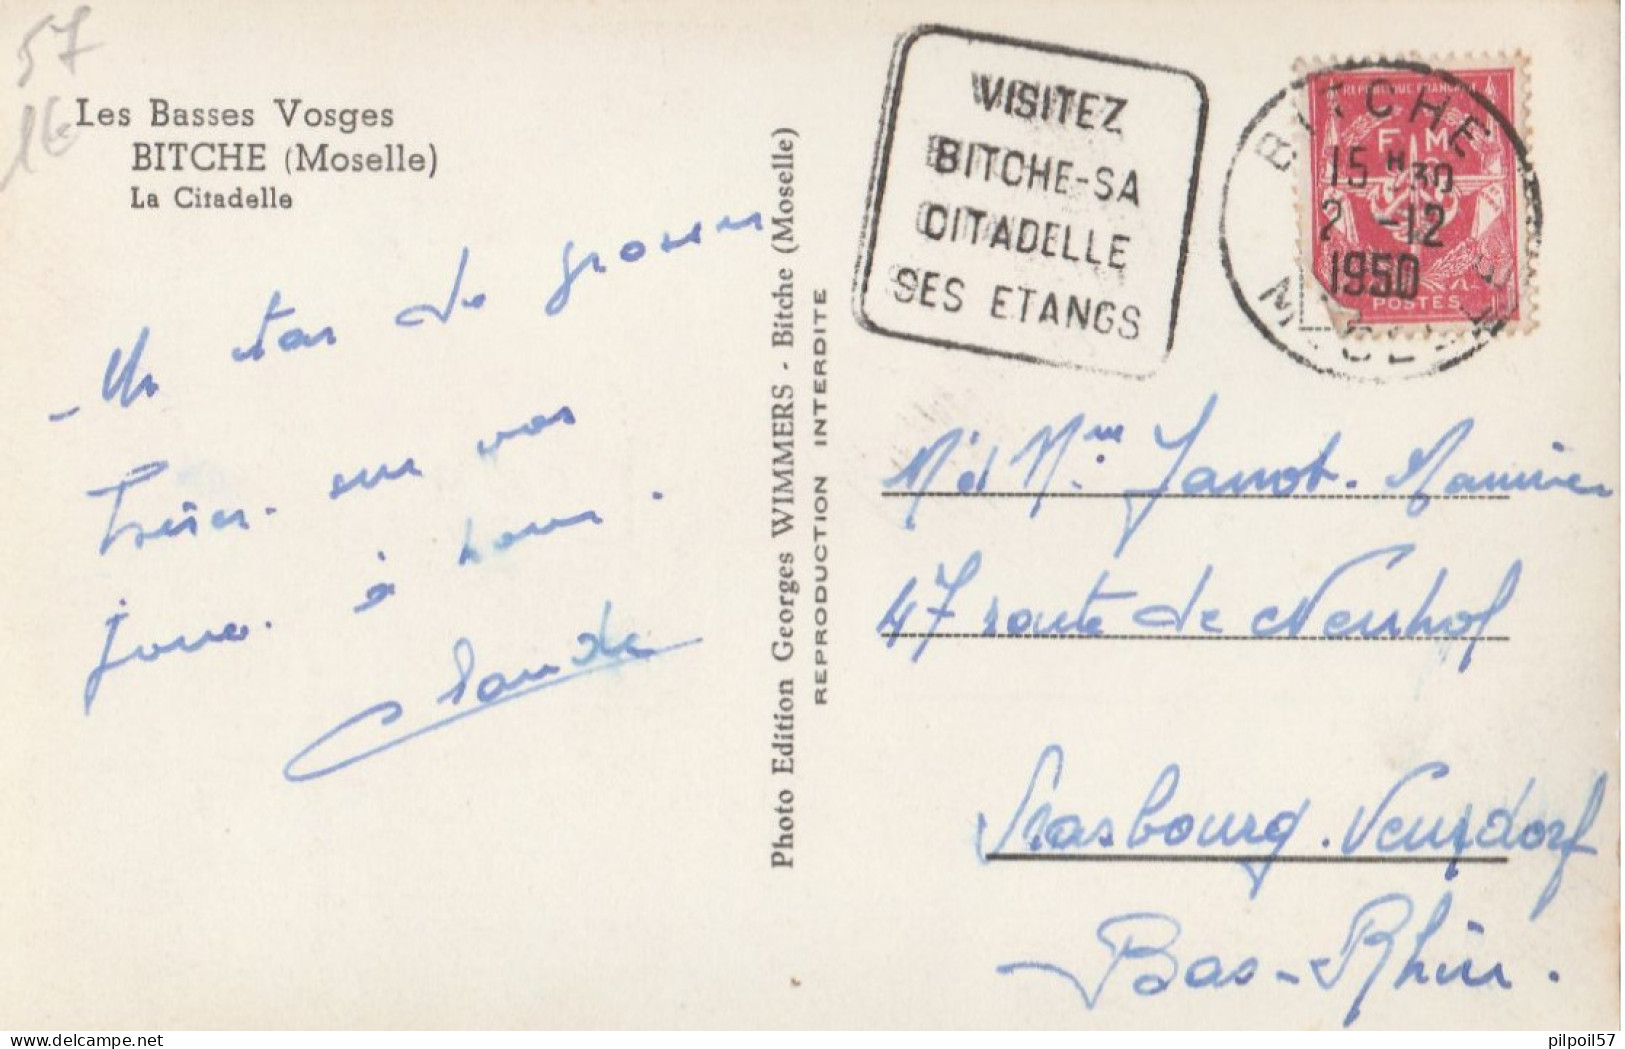 57
16
Les Basses Vosges
BITCHE (Moselle)
La Citadelle
Un tas de grosses
bises sur vos
joues à tous.
Claude
Photo Edition Georges WIMMERS - Bitche (Moselle)
REPRODUCTION INTERDITE
VISITEZ
BITCHE-SA
CITADELLE
SES ETANGS
BITCHE
15 H 30
2 -12
1950
MOSELLE
REPUBLIQUE FRANÇAISE
F M
POSTES
M et Mme Janot
47 route de Neuhof
Strasbourg. Neudorf
Bas-Rhin.
pilpoil57